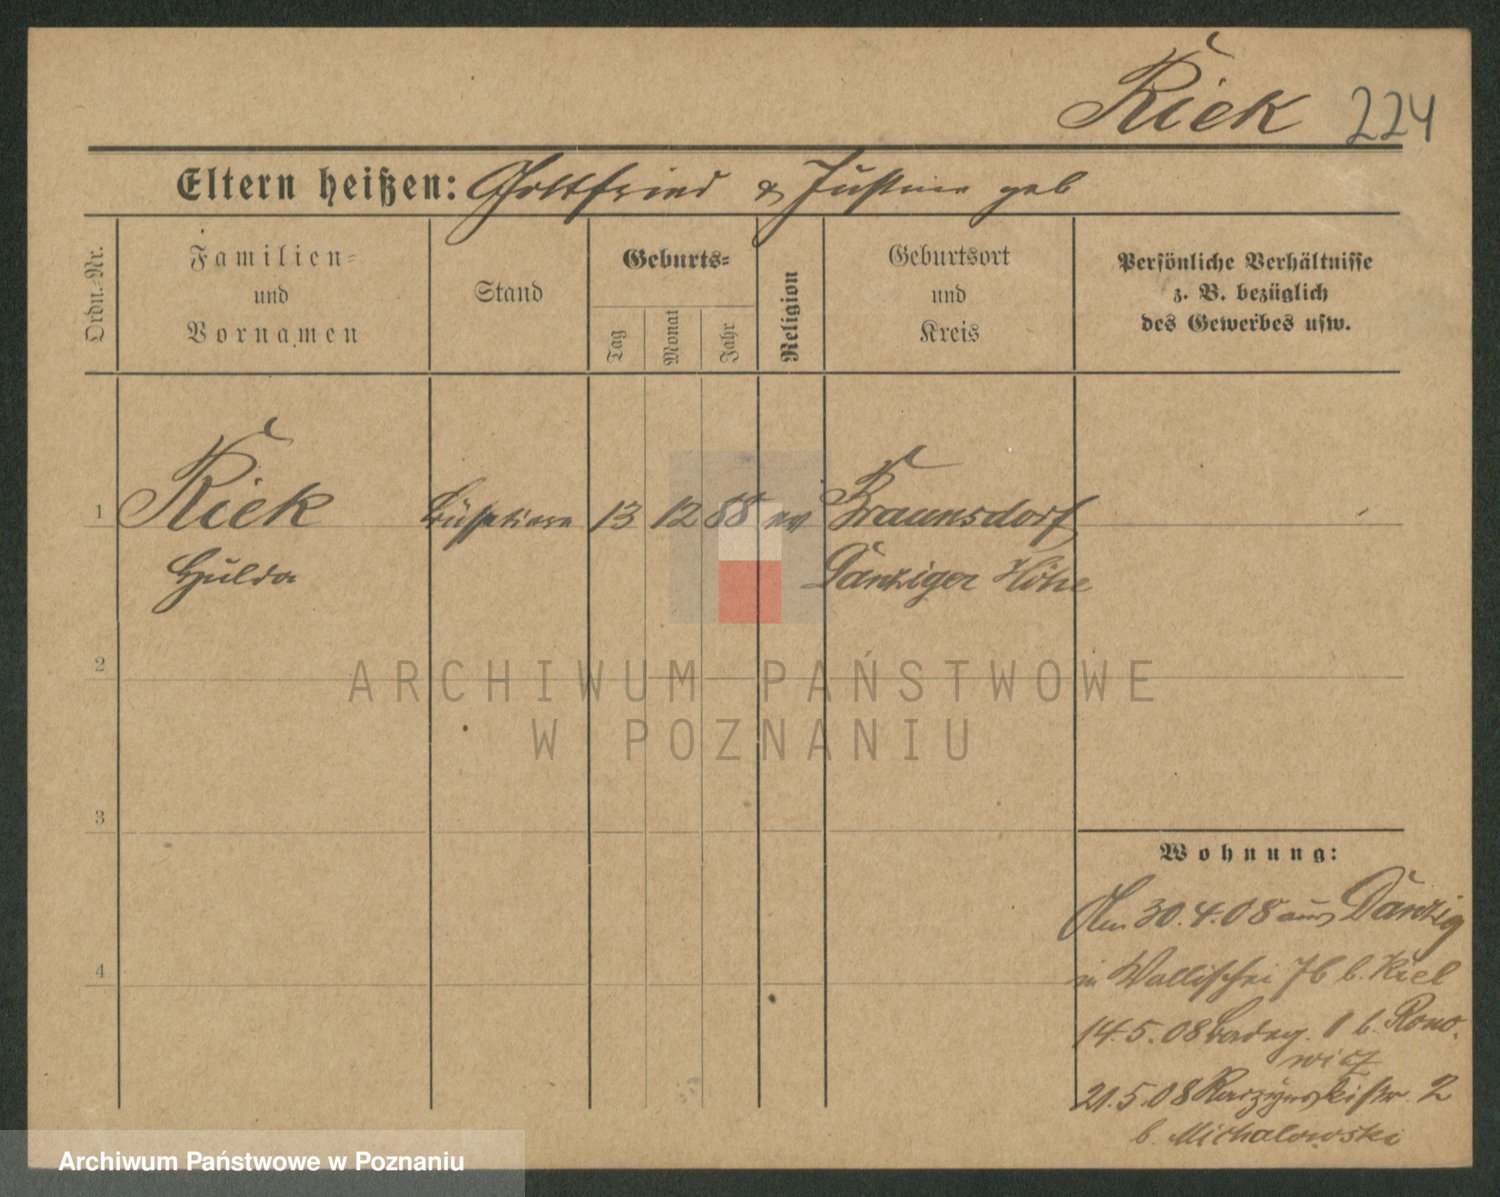 Riek 224
Eltern heißen: Gottfried & Justine geb
Ordn.-Nr.
Familien-
und
Vornamen
Stand
Geburts-
Tag
Monat
Jahr
Religion
Geburtsort
und
Kreis
Persönliche Verhältnisse
z. B. bezüglich
des Gewerbes usw.
1 Riek 13 12 88 ev Braunsdorf
Hulda Danziger Höhe
2
ARCHIWUM PAŃSTWOWE
W POZNANIU
3
Wohnung:
30.4.08 aus Danzig
4
in Wallischei 76 b. Kiel
14.5.08 1 b. Rono-
wicz
21.5.08 Raczynskistr. 2
b. Michalowski
Archiwum Państwowe w Poznaniu